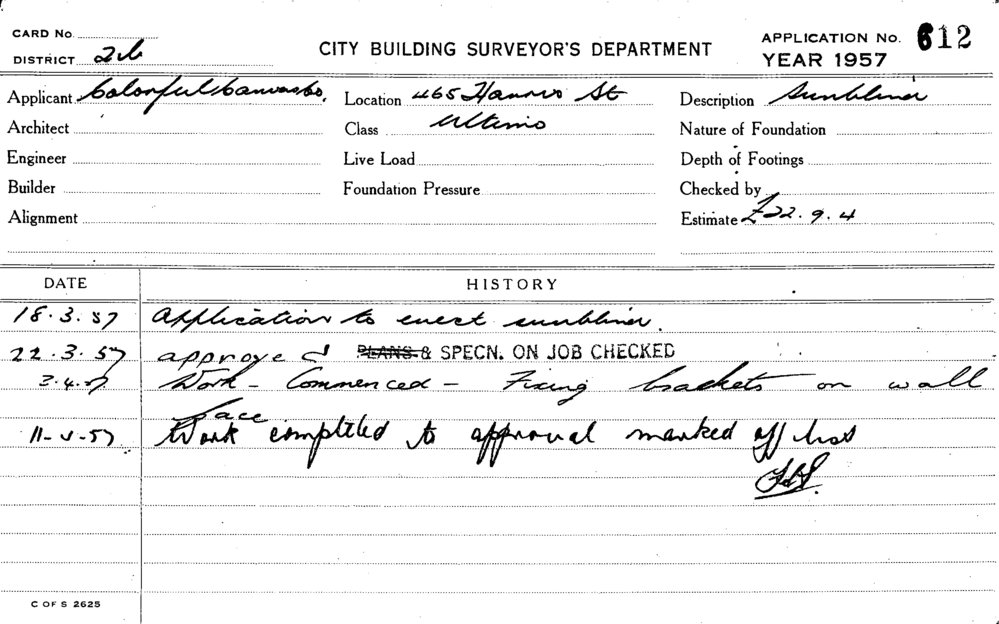 CARD No.
DISTRICT 26
CITY BUILDING SURVEYOR'S DEPARTMENT
APPLICATION No. 612
YEAR 1957
Applicant Colorful Canvas Co. Location 465 Harris St Description Sunblind
Architect Class Ultimo Nature of Foundation
Engineer Live Load Depth of Footings
Builder Foundation Pressure Checked by
Alignment Estimate £22.9.4
DATE HISTORY
18.3.57 Application to erect sunblind.
22.3.57 approved PLANS & SPECN. ON JOB CHECKED
3.4.57 Work - Commenced - Fixing brackets on wall
face
11-4-57 Work completed to approval marked off list
C OF S 2625